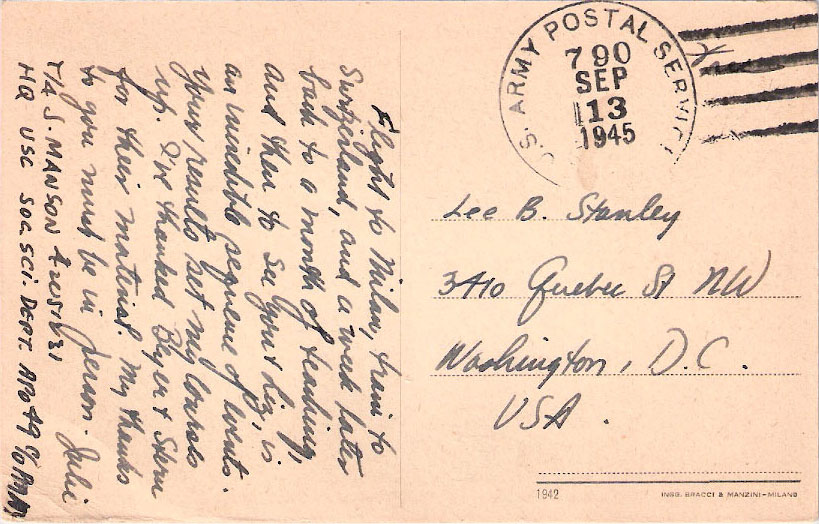 Flight to Milan, train to
Switzerland, and a week later
back to a month of teaching,
and then to see you & Liz, is
an incredible sequence of events.
Your results set my corals
up. I've thanked Byer & Stern
for their material. My thanks
to you must be in person. Julie
T/4 S. MANSON
HQ USC SOC. SCI. DEPT. APO 49 c/o PM, NY
U.S. ARMY POSTAL SERVICE
790
SEP
13
1945
Lee B. Stanley
3410 Quebec St NW
Washington, D.C.
USA.
1942
INGG. BRACCI & MANZINI-MILANO